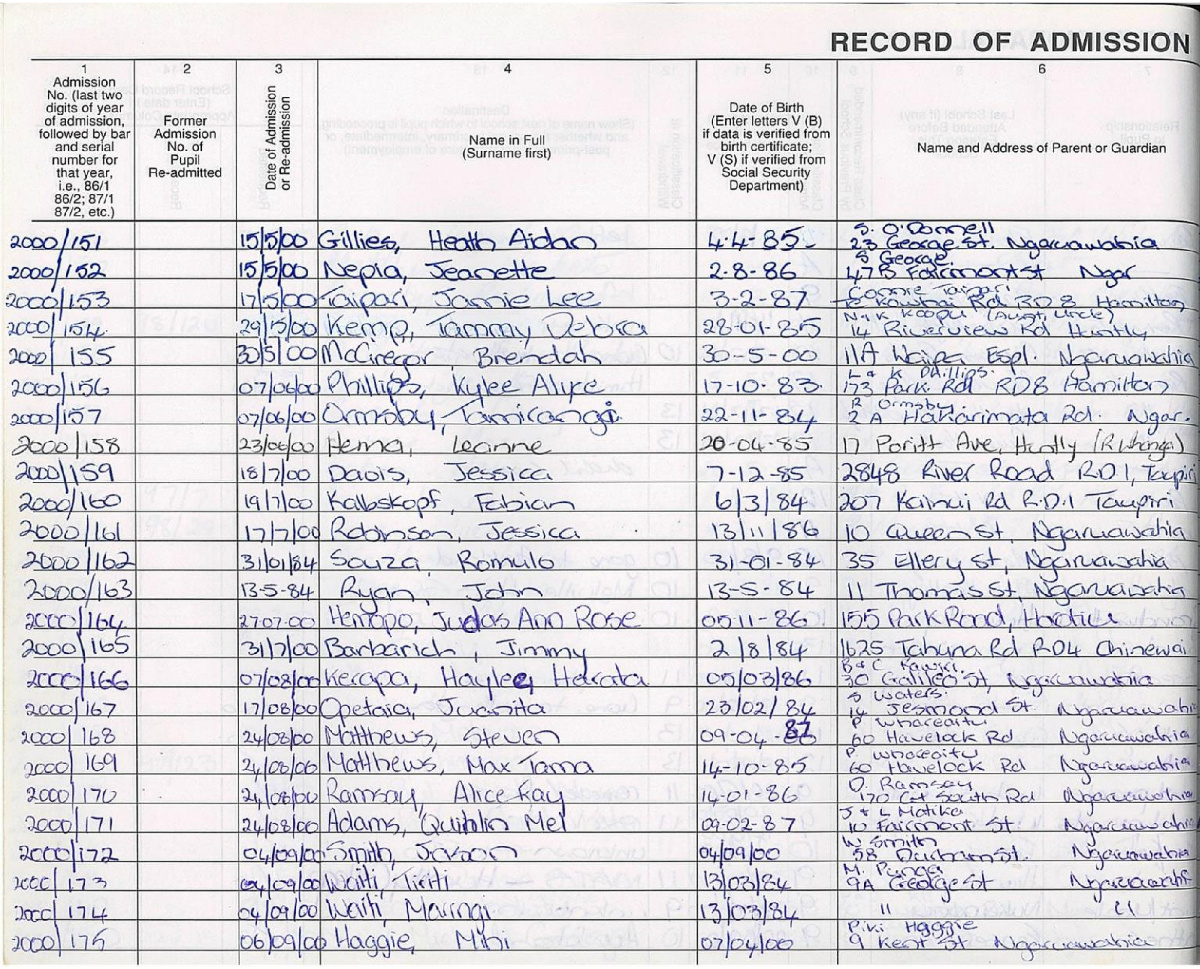 RECORD OF ADMISSION
1 2 3 4 5 6
Admission No. (last two digits of year of admission, followed by bar and serial number for that year, i.e., 86/1 86/2; 87/1 87/2, etc.)
Former Admission No. of Pupil Re-admitted
Date of Admission or Re-admission
Name in Full (Surname first)
Date of Birth (Enter letters V (B) if data is verified from birth certificate; V (S) if verified from Social Security Department)
Name and Address of Parent or Guardian
S. O'Donnell
2000/151 15/5/00 Gillies, Heath Aidan 4-4-85 23 George St. Ngaruawahia
S George
2000/152 15/5/00 Nepia, Jeanette 2-8-86 47B Fairmont St Ngar
Connie Taipari
2000/153 17/5/00 Taipari, Jamie Lee 3-2-87 Rd RD8 Hamilton
N & K Koopu (Aunt, Uncle)
2000/154 29/5/00 Kemp, Tammy Debra 28-01-85 14 Riverview Rd Huntly
2000/155 30/5/00 McGregor Brendah 30-5-00 11A Waipa Espl. Ngaruawahia
L & K Phillips.
2000/156 07/06/00 Phillips, Kylee Alyce 17-10-83 173 Park Rd RD8 Hamilton
R Ormsby
2000/157 07/06/00 Ormsby, Tamirangi 22-11-84 2A Hakarimata Rd. Ngar.
2000/158 23/06/00 Hema, Leanne 20-04-85 17 Poritt Ave, Huntly
2000/159 18/7/00 Davis, Jessica 7-12-85 2848 River Road RD1, Taupiri
2000/160 19/7/00 Kalbskopf, Fabian 6/3/84 207 Kainui Rd R.D.1 Taupiri
2000/161 17/7/00 Robinson, Jessica 13/11/86 10 Queen st, Ngaruawahia
2000/162 31/01/84 Souza, Romulo 31-01-84 35 Ellery st, Ngaruawahia
2000/163 13-5-84 Ryan, John 13-5-84 11 Thomas st, Ngaruawahia
2000/164 27-07-00 Hemopo, Judas Ann Rose 05-11-86 155 Park Road, Horotiu
2000/165 31/7/00 Barbarich, Jimmy 2/8/84 1625 Tahuna Rd RD4 Ohinewai
B & C Kawiri
2000/166 07/08/00 Kerapa, Haylee Herata 05/03/86 30 Galileo St, Ngaruawahia
S Waters.
2000/167 17/08/00 Opetaia, Juanita 23/02/84 14 Jesmond St Ngaruawahia
P whareaitu
2000/168 24/08/00 Matthews, Steven 09-04-87 60 Havelock Rd Ngaruawahia
P. whareaitu
2000/169 24/08/00 Matthews, Max Tama 14-10-85 60 Havelock Rd Ngaruawahia
O. Ramsay
2000/170 24/08/00 Ramsay, Alice Kay 14-01-86 170 Gt South Rd Ngaruawahia
J & L Matika
2000/171 24/08/00 Adams, Quinlin Mel 09-02-87 10 Fairmont St Ngaruawahia
W Smith
2000/172 04/09/00 Smith, Jason 04/09/00 58 Durham St. Ngaruawahia
M. Punga
2000/173 04/09/00 Waiti, Tiriti 13/03/84 9A George St Ngaruawahia
2000/174 04/09/00 Waiti, Maringi 13/03/84 " "
Piki Haggie
2000/175 06/09/00 Haggie, Mihi 07/04/00 9 Kent St Ngaruawahia